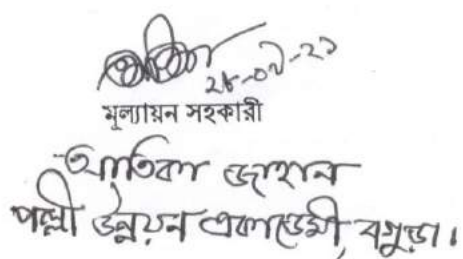 ২৮-০৭-২১
মূল্যায়ন সহকারী
আতিকা জাহান
পল্লী উন্নয়ন একাডেমী, বগুড়া।